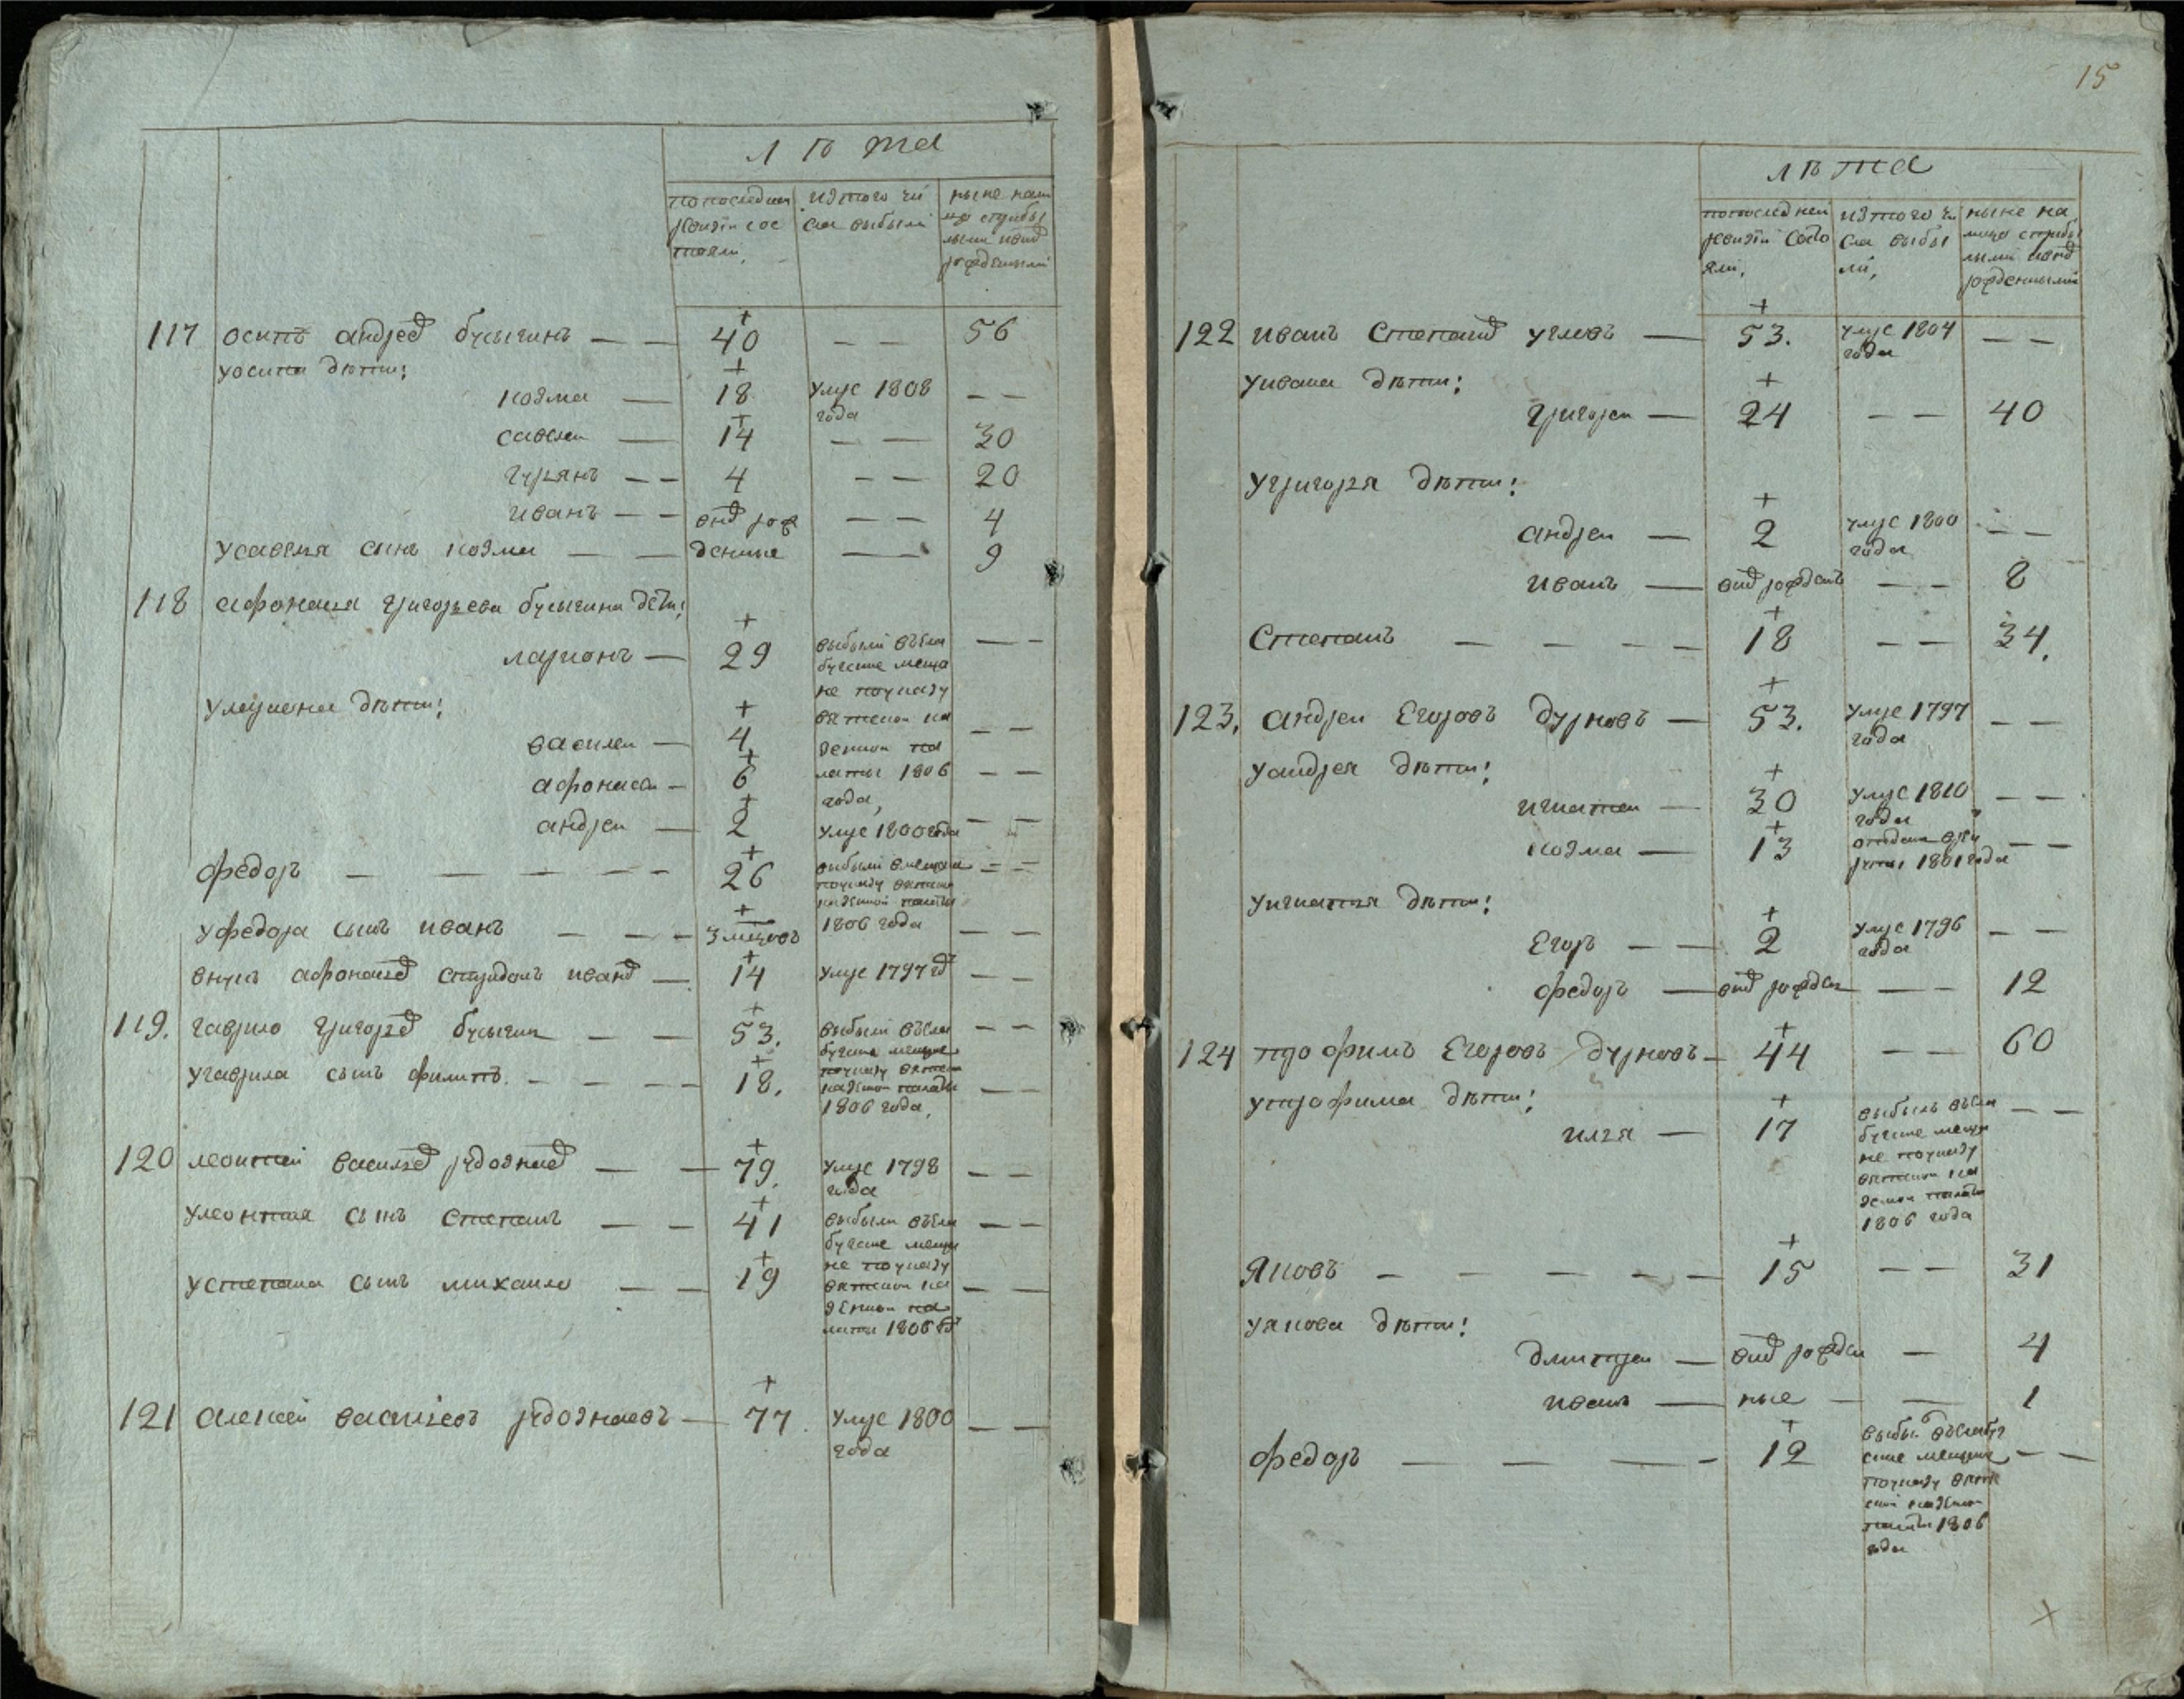 лѣта
по последней ревизїи состояли,
из того числа выбыли
ныне налицо с прибылыми и внов рожденными
117 осипъ андреев бусыгинъ — — 40 — — 56
у осипа дѣти:
козма — 18 умре 1808 года — —
савелеи — 14 — — 30
гурьянъ — — 4 — — 20
иванъ — — внов рож — — 4
у савелья сынъ козма — — денные — — 9
118 афонасья григорьева бусыгина дети:
ларионъ — 29 выбыли въ — —
мещане по указу вятской казенной палаты 1806 года,
у лариона дѣти:
василеи — 4 — —
афонасеи — 6 — —
андреи — 2 умре 1800 года — —
федоръ — — — — — 26 выбыли в мещане по указу вятской казенной палаты 1806 года — —
у федора сынъ иванъ — — — 3 мцовъ — —
внукъ афонасьев спиридонъ иванов — 14 умре 1797 год — —
119. гаврило григорьев бусыгин — — 53. выбыли въ — —
мещане по указу вятской казенной палаты 1806 года,
у гаврила сынъ филипъ. — — — — 18. — —
120 леонтей васильев рдознаев — — 79. умре 1798 года — —
у леонтья сынъ степанъ — — 41 выбыли въ — —
мещане по указу вятской казенной палаты 1806 год
у степана сынъ михаило — — 19 — —
121 алексей васильевъ рдознаевъ — 77. умре 1800 года — —
15
лѣта
по последней ревизїи состояли,
из того числа выбыли,
ныне налицо с прибылыми и внов рожденными
122 иванъ степанов угловъ — 53. умре 1804 года — —
у ивана дѣти:
григореи — 24 — — 40
у григорья дѣти:
андреи — 2 умре 1800 года — —
иванъ — внов рожденъ — — 8
степанъ — — — — 18 — — 34.
123. андреи егоровъ дурновъ — 53. умре 1797 года — —
у андрея дѣти:
игнатеи — 30 умре 1810 года — —
козма — 13 отданъ в рекруты 1801 года — —
у игнатья дѣти:
егоръ — — 2 умре 1796 года — —
федоръ — внов рожден — — 12
124 трофимъ егоровъ дурновъ — 44 — — 60
у трофима дѣти:
илья — 17 выбылъ въ — —
мещане по указу вятской казенной палаты 1806 года
яковъ — — — — — 15 — — 31
у якова дѣти:
дмитреи — внов рожден — 4
иванъ — ные — — 1
федоръ — — — — 12 выбыл въ — —
мещане по указу вятской казенной палаты 1806 года